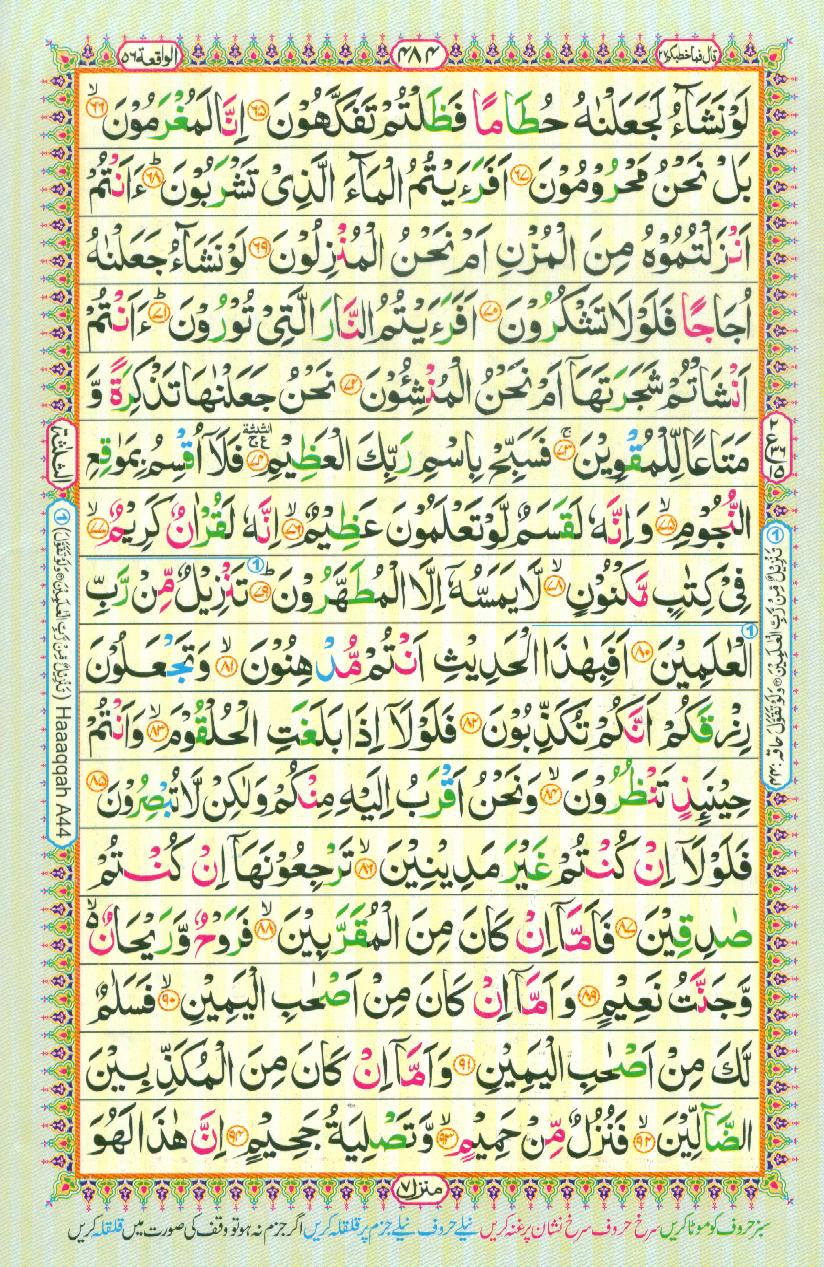 قال فما خطبكم ٢٧
٤٨٤
الواقعة ٥٦
لَوْ نَشَآءُ لَجَعَلْنٰهُ حُطَامًا فَظَلْتُمْ تَفَكَّهُوْنَ ﴿٦٥﴾ اِنَّا لَمُغْرَمُوْنَ ﴿٦٦﴾ۙ
بَلْ نَحْنُ مَحْرُوْمُوْنَ ﴿٦٧﴾ اَفَرَءَيْتُمُ الْمَآءَ الَّذِىْ تَشْرَبُوْنَ ﴿٦٨﴾ؕ ءَاَنْتُمْ
اَنْزَلْتُمُوْهُ مِنَ الْمُزْنِ اَمْ نَحْنُ الْمُنْزِلُوْنَ ﴿٦٩﴾ لَوْ نَشَآءُ جَعَلْنٰهُ
اُجَاجًا فَلَوْلَا تَشْكُرُوْنَ ﴿٧٠﴾ اَفَرَءَيْتُمُ النَّارَ الَّتِىْ تُوْرُوْنَ ﴿٧١﴾ؕ ءَاَنْتُمْ
اَنْشَاْتُمْ شَجَرَتَهَآ اَمْ نَحْنُ الْمُنْشِئُوْنَ ﴿٧٢﴾ نَحْنُ جَعَلْنٰهَا تَذْكِرَةً وَّ
مَتَاعًا لِّلْمُقْوِيْنَ ﴿٧٣﴾ۚ فَسَبِّحْ بِاسْمِ رَبِّكَ الْعَظِيْمِ ﴿٧٤﴾ فَلَآ اُقْسِمُ بِمَوٰقِعِ
النُّجُوْمِ ﴿٧٥﴾ۙ وَاِنَّهٗ لَقَسَمٌ لَّوْ تَعْلَمُوْنَ عَظِيْمٌ ﴿٧٦﴾ۙ اِنَّهٗ لَقُرْاٰنٌ كَرِيْمٌ ﴿٧٧﴾ۙ
فِىْ كِتٰبٍ مَّكْنُوْنٍ ﴿٧٨﴾ۙ لَّا يَمَسُّهٗٓ اِلَّا الْمُطَهَّرُوْنَ ﴿٧٩﴾ؕ تَنْزِيْلٌ مِّنْ رَّبِّ
الْعٰلَمِيْنَ ﴿٨٠﴾ اَفَبِهٰذَا الْحَدِيْثِ اَنْتُمْ مُّدْهِنُوْنَ ﴿٨١﴾ۙ وَتَجْعَلُوْنَ
رِزْقَكُمْ اَنَّكُمْ تُكَذِّبُوْنَ ﴿٨٢﴾ فَلَوْلَآ اِذَا بَلَغَتِ الْحُلْقُوْمَ ﴿٨٣﴾ۙ وَاَنْتُمْ
حِيْنَئِذٍ تَنْظُرُوْنَ ﴿٨٤﴾ۙ وَنَحْنُ اَقْرَبُ اِلَيْهِ مِنْكُمْ وَلٰكِنْ لَّا تُبْصِرُوْنَ ﴿٨٥﴾
فَلَوْلَآ اِنْ كُنْتُمْ غَيْرَ مَدِيْنِيْنَ ﴿٨٦﴾ۙ تَرْجِعُوْنَهَآ اِنْ كُنْتُمْ
صٰدِقِيْنَ ﴿٨٧﴾ فَاَمَّآ اِنْ كَانَ مِنَ الْمُقَرَّبِيْنَ ﴿٨٨﴾ۙ فَرَوْحٌ وَّرَيْحَانٌ ۙ۬
وَّجَنَّتُ نَعِيْمٍ ﴿٨٩﴾ وَاَمَّآ اِنْ كَانَ مِنْ اَصْحٰبِ الْيَمِيْنِ ﴿٩٠﴾ۙ فَسَلٰمٌ
لَّكَ مِنْ اَصْحٰبِ الْيَمِيْنِ ﴿٩١﴾ وَاَمَّآ اِنْ كَانَ مِنَ الْمُكَذِّبِيْنَ
الضَّآلِّيْنَ ﴿٩٢﴾ۙ فَنُزُلٌ مِّنْ حَمِيْمٍ ﴿٩٣﴾ۙ وَّتَصْلِيَةُ جَحِيْمٍ ﴿٩٤﴾ اِنَّ هٰذَا لَهُوَ
منزل ٧
سبز حروف کو موٹا کریں سرخ حروف سرخ نشان پر غنہ کریں نیلے حروف نیلے جزم پر قلقلہ کریں اگر جزم نہ ہو تو وقف کی صورت میں قلقلہ کریں
① تَنْزِيْلٌ مِّنْ رَّبِّ الْعٰلَمِيْنَ وَلَوْ تَقَوَّلَ حاقہ : ٤٤
① (تَنْزِيْلٌ مِّنْ رَّبِّ الْعٰلَمِيْنَ وَلَوْ تَقَوَّلَ) Haaaqqah A44